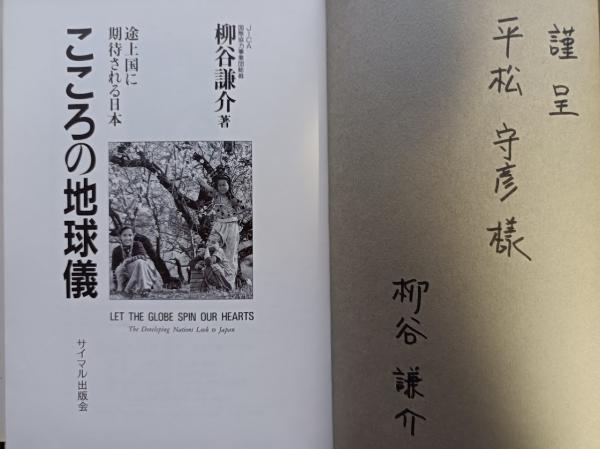 謹呈
平松守彦様
柳谷謙介
JICA
国際協力事業団総裁
柳谷謙介 著
途上国に
期待される日本
こころの地球儀
LET THE GLOBE SPIN OUR HEARTS
The Developing Nations Look to Japan
サイマル出版会